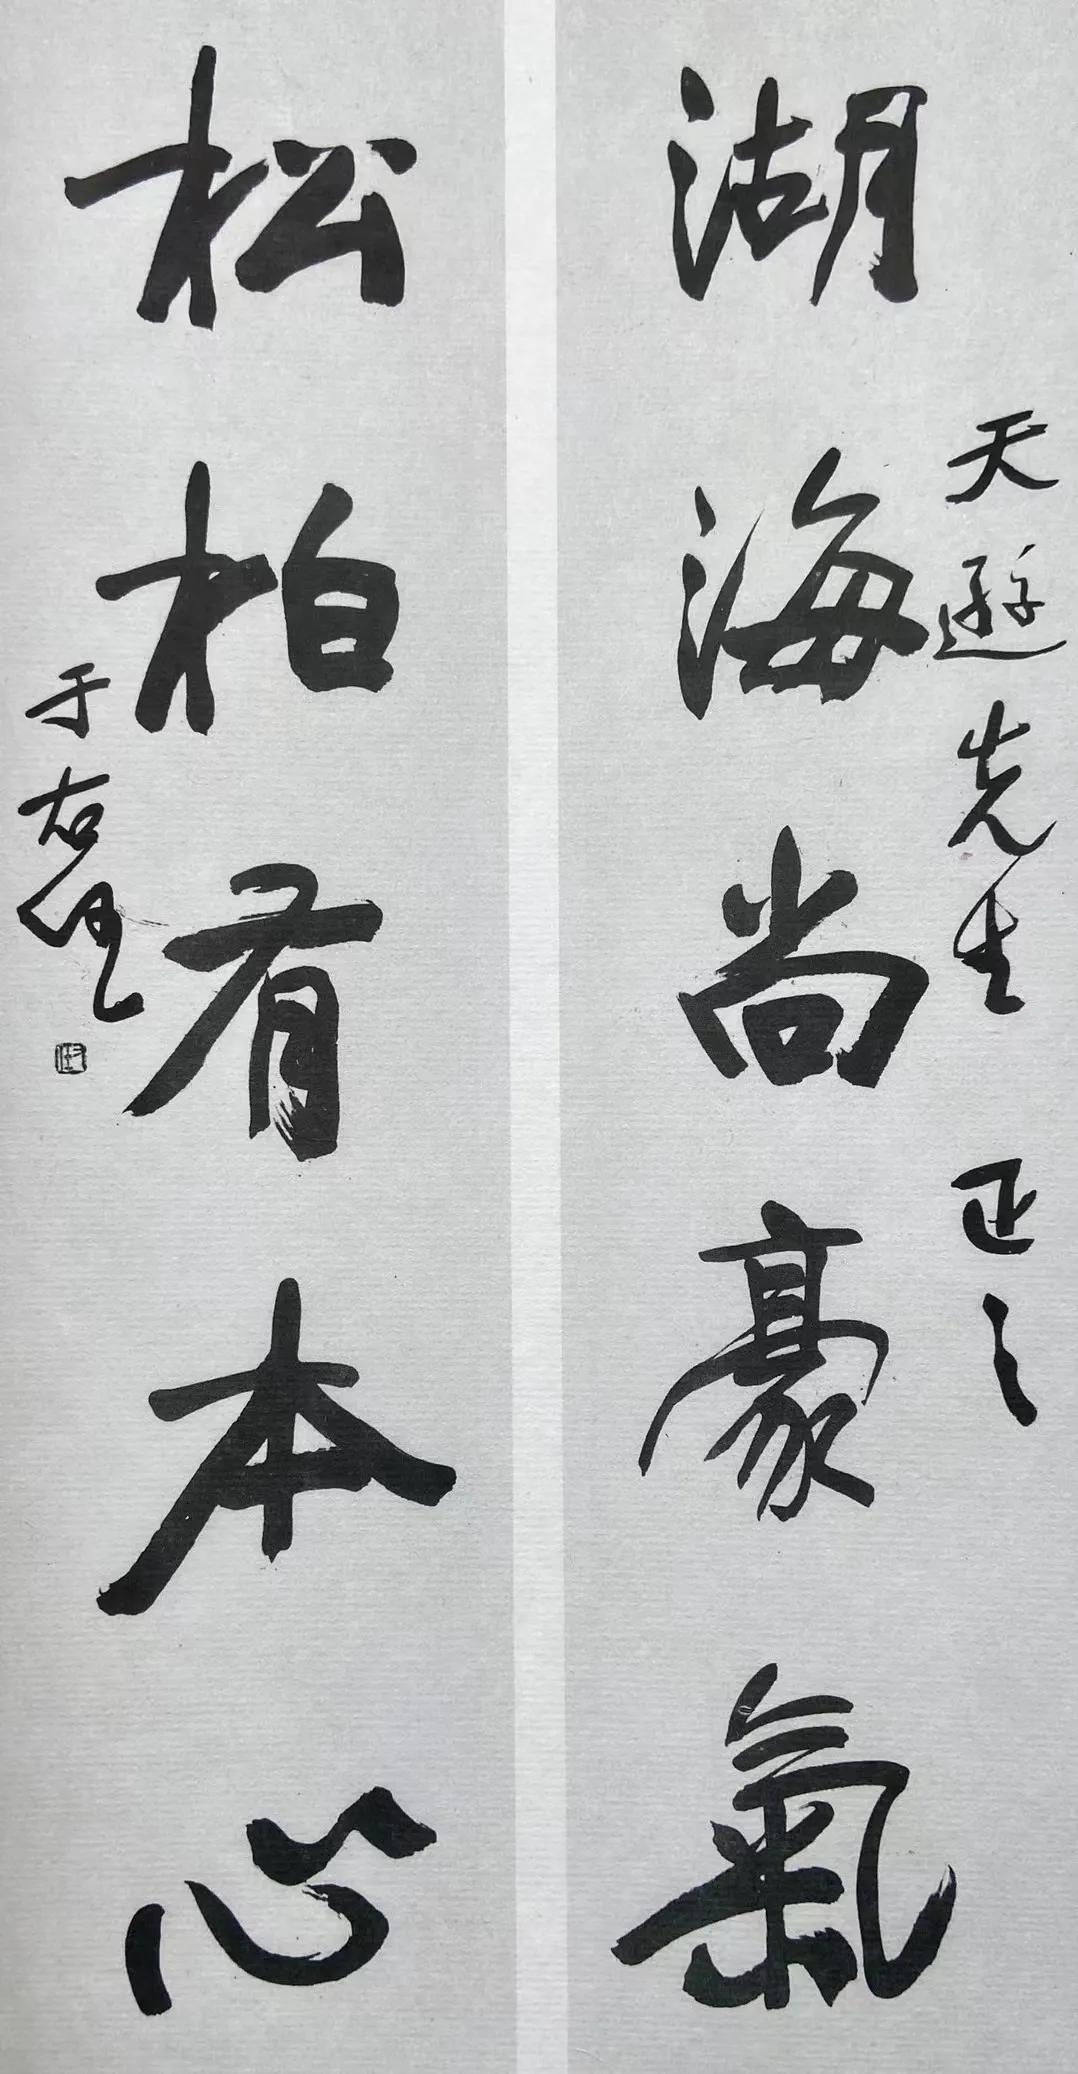 天遊先生正之
湖海尚豪氣
松柏有本心
于右任